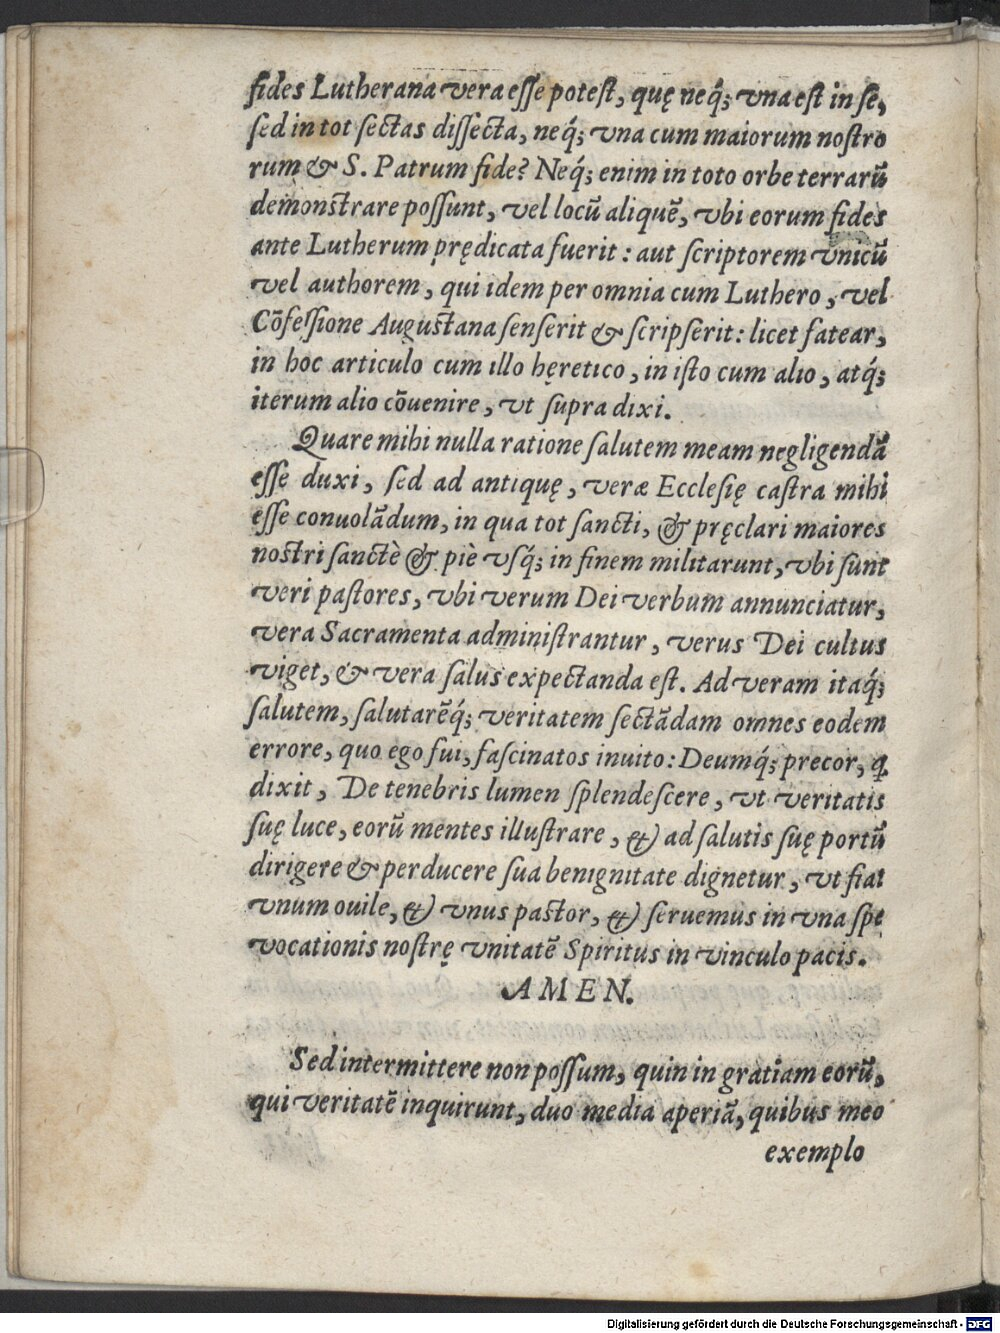 fides Lutherana vera esse potest, quę neq́; vna est in se,
sed in tot sectas dissecta, neq́; vna cum maiorum nostro
rum & S. Patrum fide? Neq́; enim in toto orbe terrarũ
demonstrare possunt, vel locũ aliquẽ, vbi eorum fides
ante Lutherum prędicata fuerit: aut scriptorem vnicũ
vel authorem, qui idem per omnia cum Luthero, vel
Cõfessione Augustana senserit & scripserit: licet fatear,
in hoc articulo cum illo hęretico, in isto cum alio, atq́;
iterum alio cõuenire, vt supra dixi.
Quare mihi nulla ratione salutem meam negligendã
esse duxi, sed ad antiquę, veræ Ecclesię castra mihi
esse conuolãdum, in qua tot sancti, & pręclari maiores
nostri sanctè & piè vsq́; in finem militarunt, vbi sunt
veri pastores, vbi verum Dei verbum annunciatur,
vera Sacramenta administrantur, verus Dei cultus
viget, & vera salus expectanda est. Ad veram itaq́;
salutem, salutarẽq́; veritatem sectãdam omnes eodem
errore, quo ego fui, fascinatos inuito: Deumq́; precor, ꝗ
dixit, De tenebris lumen splendescere, vt veritatis
suę luce, eorũ mentes illustrare, & ad salutis suę portũ
dirigere & perducere sua benignitate dignetur, vt fiat
vnum ouile, & vnus pastor, & seruemus in vna spe
vocationis nostrę vnitatẽ Spiritus in vinculo pacis.
AMEN.
Sed intermittere non possum, quin in gratiam eorũ,
qui veritatẽ inquirunt, duo media aperiã, quibus meo
exemplo
Digitalisierung gefördert durch die Deutsche Forschungsgemeinschaft - DFG